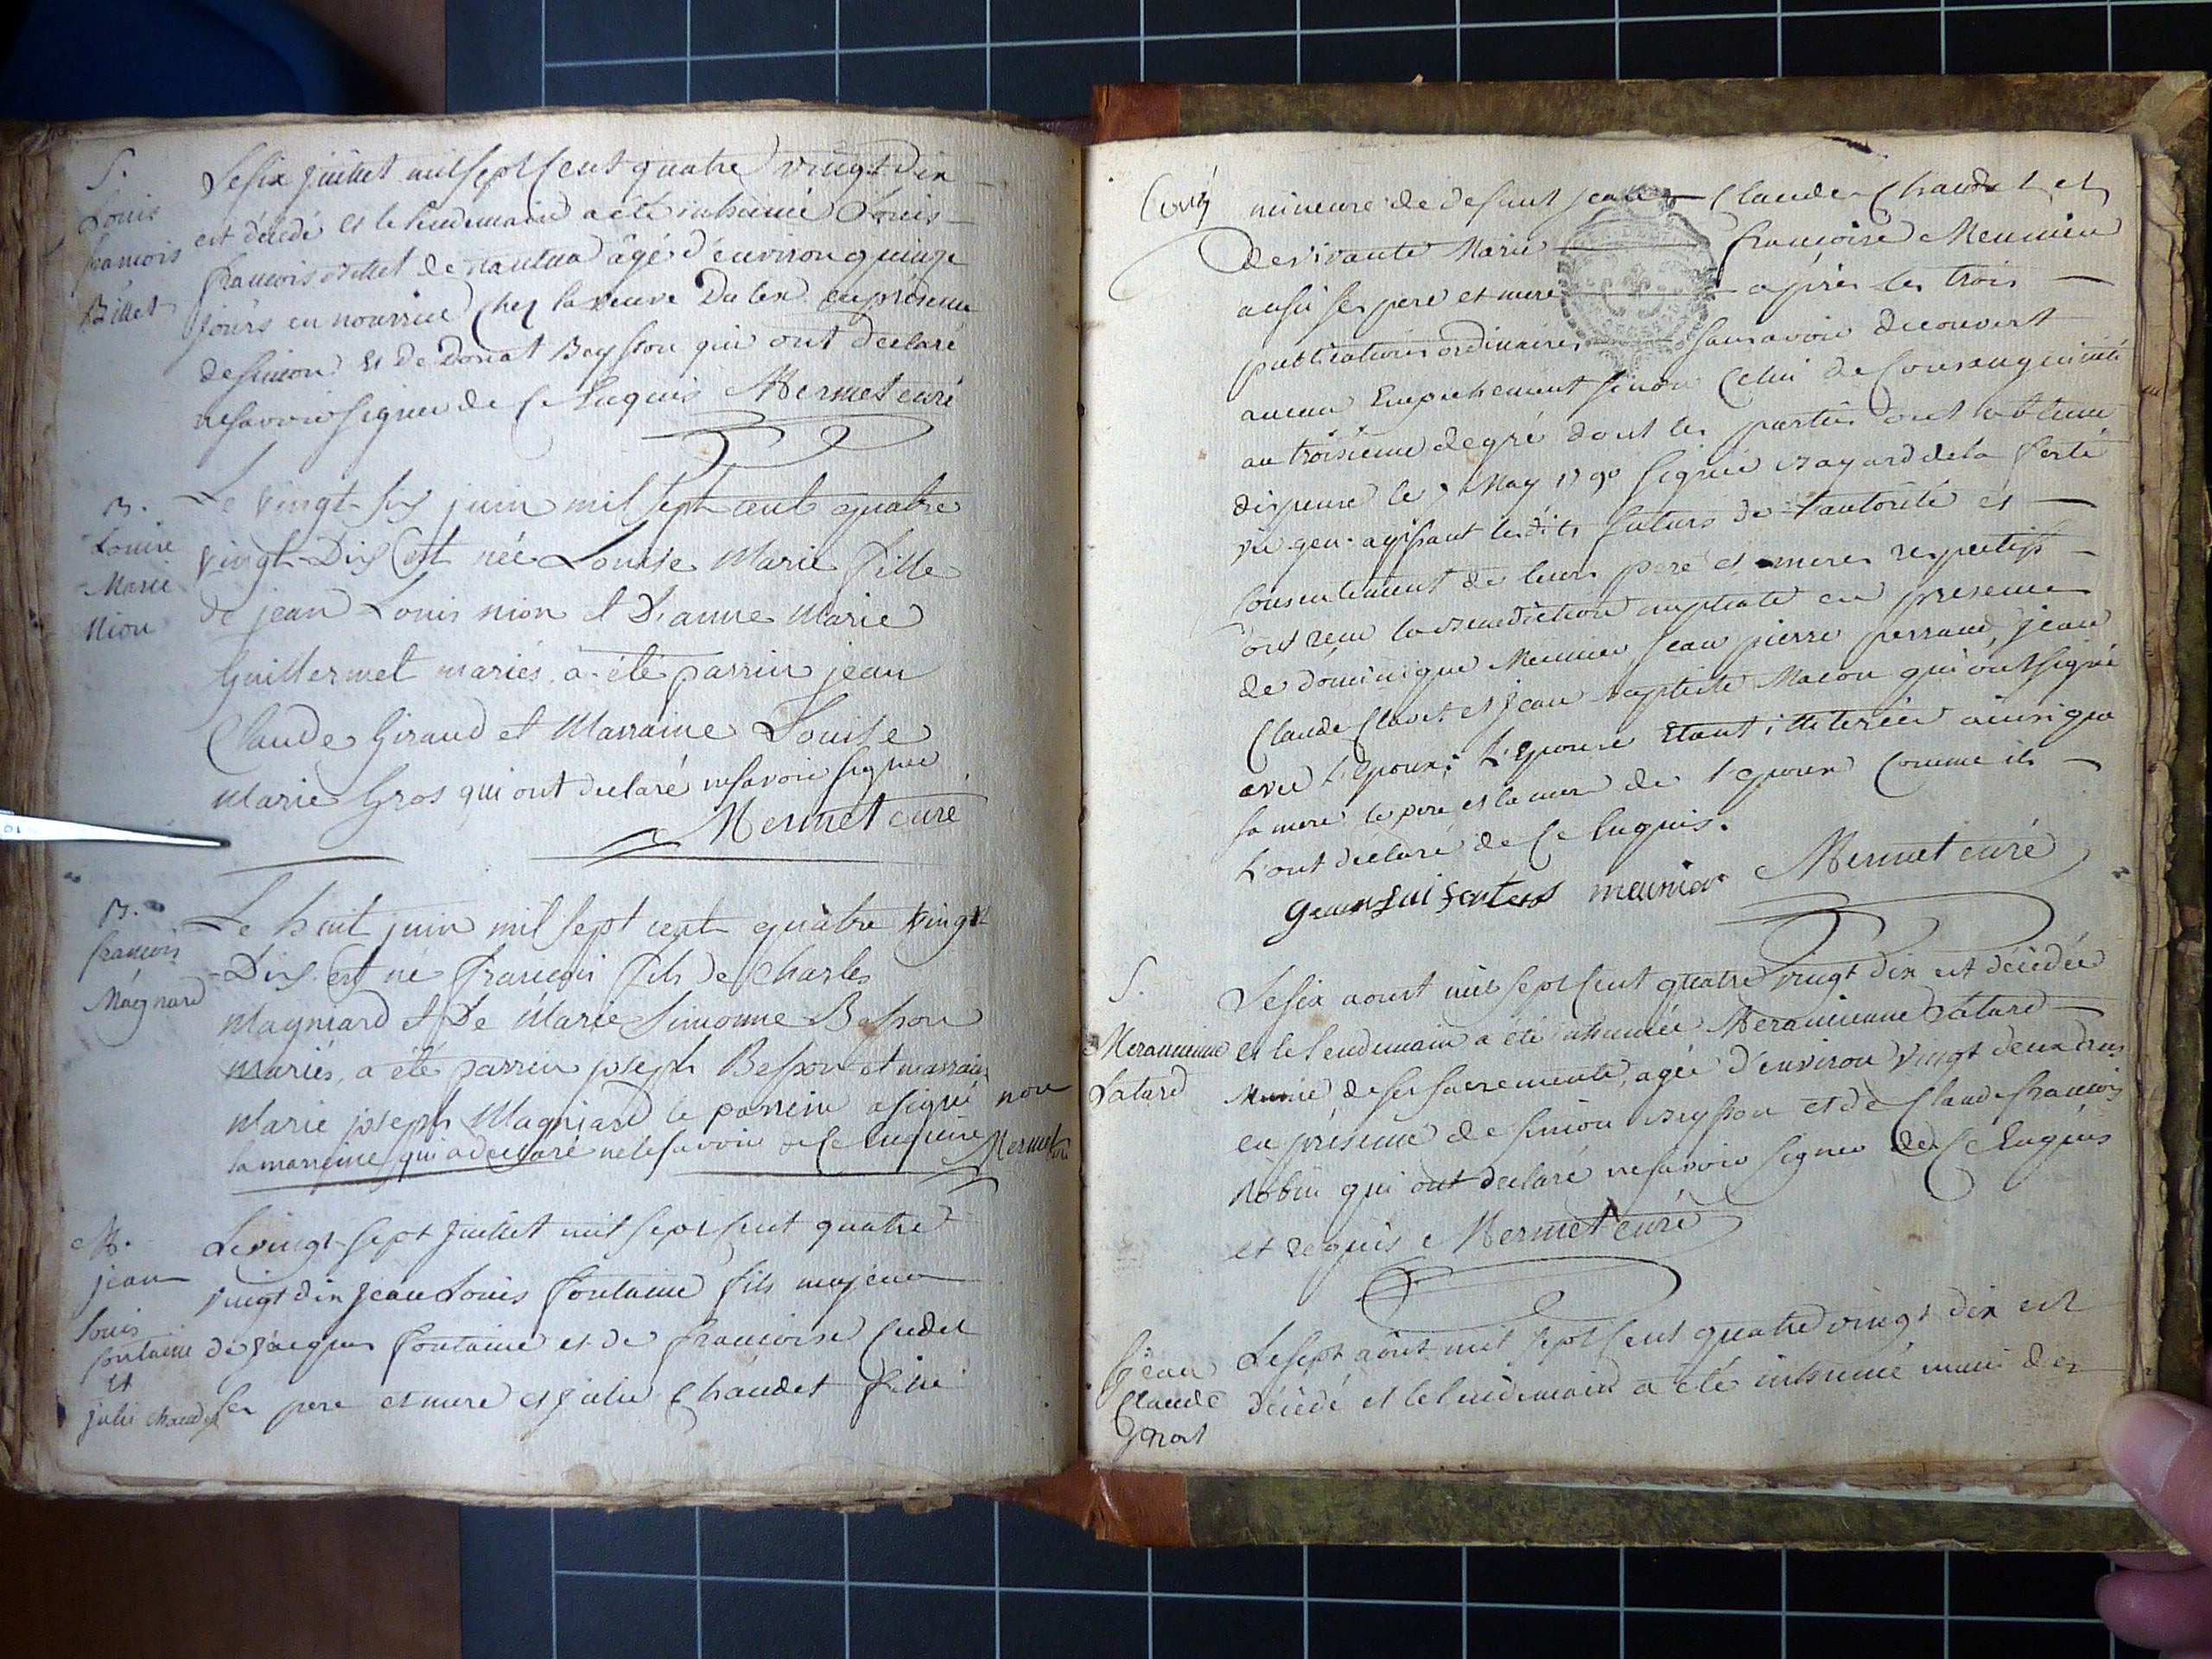 S.
Louis
francois
Billet
Le six juillet mil sept cent quatre vingt dix
est décédé et le lendemain a été inhumé Louis
francois Billet de nantua âgé d'environ quinze
jours en nourrice chez la veuve en présence
de simon et de Donat Beysson qui ont declaré
ne savoir signer de ce Enquis Mermet curé
B.
Louise
Marie
Nion
Le vingt six juin mil sept cent quatre
vingt Dix est née Louise Marie fille
de jean Louis nion et D'anne Marie
Guillermet mariés. a été parrin jean
Claude Giraud et Marraine Louise
Marie Gros qui ont declaré ne savoir signer
Mermet curé
B.
francois
Magnard
Le huit juin mil sept cent quatre vingt
Dix est né francois fils de Charles
Magniard et De Marie Simonne
mariés, a été parrin joseph Besson et marraine
Marie joseph Magniard le parrein a signé non
la marreine qui a declaré ne le savoir de ce enquise Mermet curé
M.
jean
Louis
fontaine
et
julie chaudet
Le vingt sept juillet mil sept cent quatre
vingt dix jean Louis fontaine fils majeur
de jacques fontaine et de francoise
ses pere et mere et julie Chaudet fille
mineure de defunt jean Claude Chaudet et
de vivante Marie francoise Meunier
aussi ses pere et mere après les trois
publications ordinaires sans avoir découvert
aucun Empechement sinon Celui de Consanguinité
au troisieme degré dont les parties ont obtenu
dispense le 7 May 1790 signée Bayard de la ferté
vic. gen. agissant lesdits futurs de l'autorité et
Consentement de leurs pere et meres respectifs
ont recu la Benediction nuptiale en presence
de dominique Meunier, jean pierre perraud, jean
Claude Clavet et jean baptiste Macon qui ont signé
avec l'Epoux; L'Epouse Etant illiterée ainsi que
sa mere le pere et la mere de l'epoux Comme ils
l'ont declaré de Ce Enquis.
meunier Mermet curé
S.
Meraucienne
Le six aoust mil sept cent quatre vingt dix est décédée
et le lendemain a été inhumée
Munie de ses sacrements, agée d'environ vingt deux ans
en présence de simon Beysson et de Claude francois
Robin qui ont declaré ne savoir signer de Ce Enquis
et requis Mermet curé
jean
Claude
Le sept aout mil sept cent quatre vingt dix est
décédé et le lendemain a été inhumé muni des